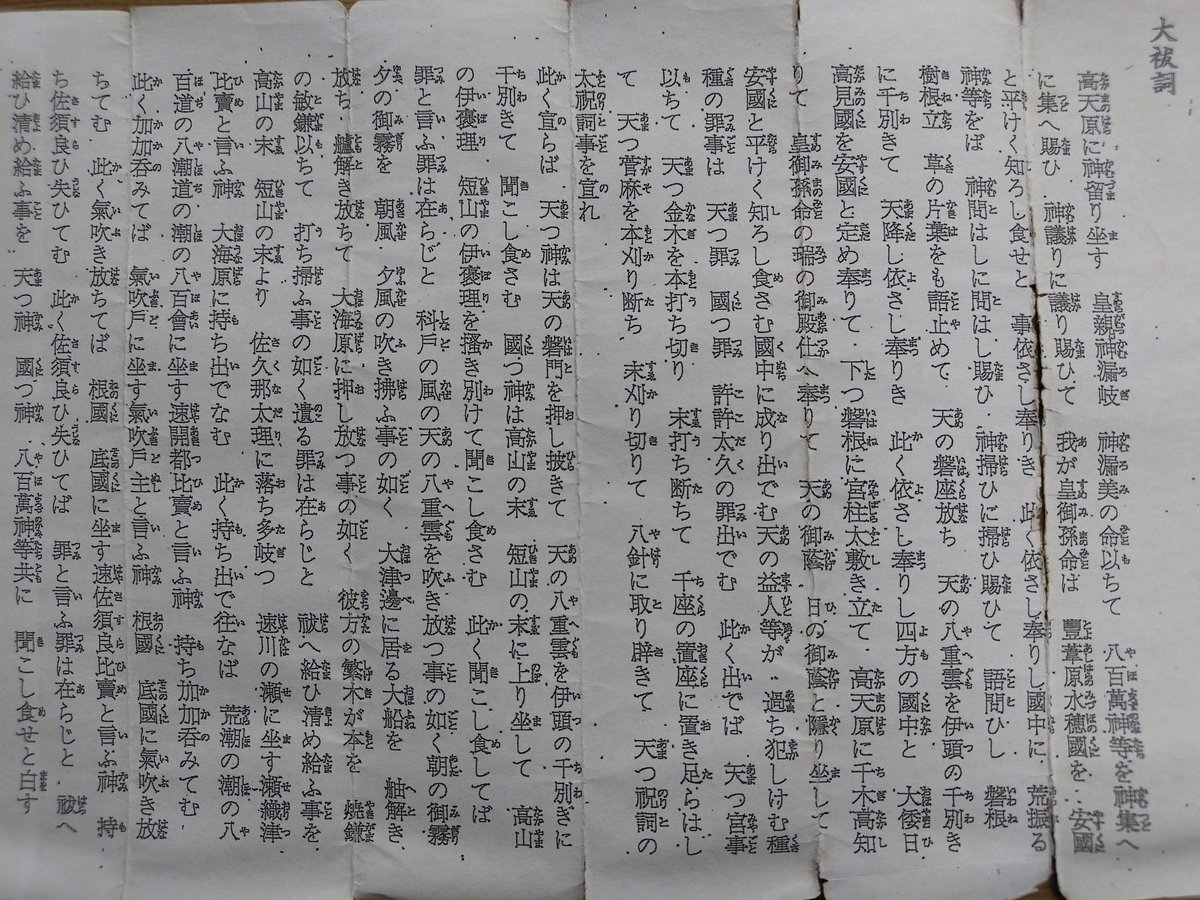 大祓詞
高天原に神留り坐す　皇親神漏岐　神漏美の命以ちて　八百萬神等を神集へ
に集へ賜ひ　神議りに議り賜ひて　我が皇御孫命は　豐葦原水穗國を　安國
と平けく知ろし食せと　事依さし奉りき　此く依さし奉りし國中に　荒振る
神等をば　神問はしに問はし賜ひ　神掃ひに掃ひ賜ひて　語問ひし　磐根
樹根立　草の片葉をも語止めて　天の磐座放ち　天の八重雲を伊頭の千別き
に千別きて　天降し依さし奉りき　此く依さし奉りし四方の國中と　大倭日
高見國を安國と定め奉りて　下つ磐根に宮柱太敷き立て　高天原に千木高知
りて　皇御孫命の瑞の御殿仕へ奉りて　天の御蔭　日の御蔭と隱り坐して
安國と平けく知ろし食さむ國中に成り出でむ天の益人等が　過ち犯しけむ種
種の罪事は　天つ罪　國つ罪　許許太久の罪出でむ　此く出でば　天つ宮事
以ちて　天つ金木を本打ち切り　末打ち斷ちて　千座の置座に置き足らはし
て　天つ菅麻を本刈り斷ち　末刈り切りて　八針に取り辟きて　天つ祝詞の
太祝詞事を宣れ
此く宣らば　天つ神は天の磐門を押し披きて　天の八重雲を伊頭の千別きに
千別きて　聞こし食さむ　國つ神は高山の末　短山の末に上り坐して　高山
の伊褒理　短山の伊褒理を搔き別けて聞こし食さむ　此く聞こし食してば
罪と言ふ罪は在らじと　科戸の風の天の八重雲を吹き放つ事の如く　朝の御霧
夕の御霧を　朝風　夕風の吹き拂ふ事の如く　大津邊に居る大船を　舳解き
放ち　艫解き放ちて　大海原に押し放つ事の如く　彼方の繁木が本を　燒鎌
の敏鎌以ちて　打ち掃ふ事の如く　遺る罪は在らじと　祓へ給ひ清め給ふ事を
高山の末　短山の末より　佐久那太理に落ち多岐つ　速川の瀨に坐す瀨織津
比賣と言ふ神　大海原に持ち出でなむ　此く持ち出で往なば　荒潮の潮の八
百道の八潮道の潮の八百會に坐す速開都比賣と言ふ神　持ち加加吞みてむ
此く加加吞みてば　氣吹戸に坐す氣吹戸主と言ふ神　根國　底國に氣吹き放
ちてむ　此く氣吹き放ちてば　根國　底國に坐す速佐須良比賣と言ふ神　持
ち佐須良ひ失ひてむ　此く佐須良ひ失ひてば　罪と言ふ罪は在らじと　祓へ
給ひ清め給ふ事を　天つ神　國つ神　八百萬神等共に　聞こし食せと白す